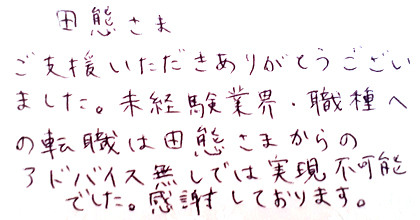 田態さま
ご支援いただきありがとうござい
ました。未経験業界・職種へ
の転職は田態さまからの
アドバイス無しでは実現不可能
でした。感謝しております。